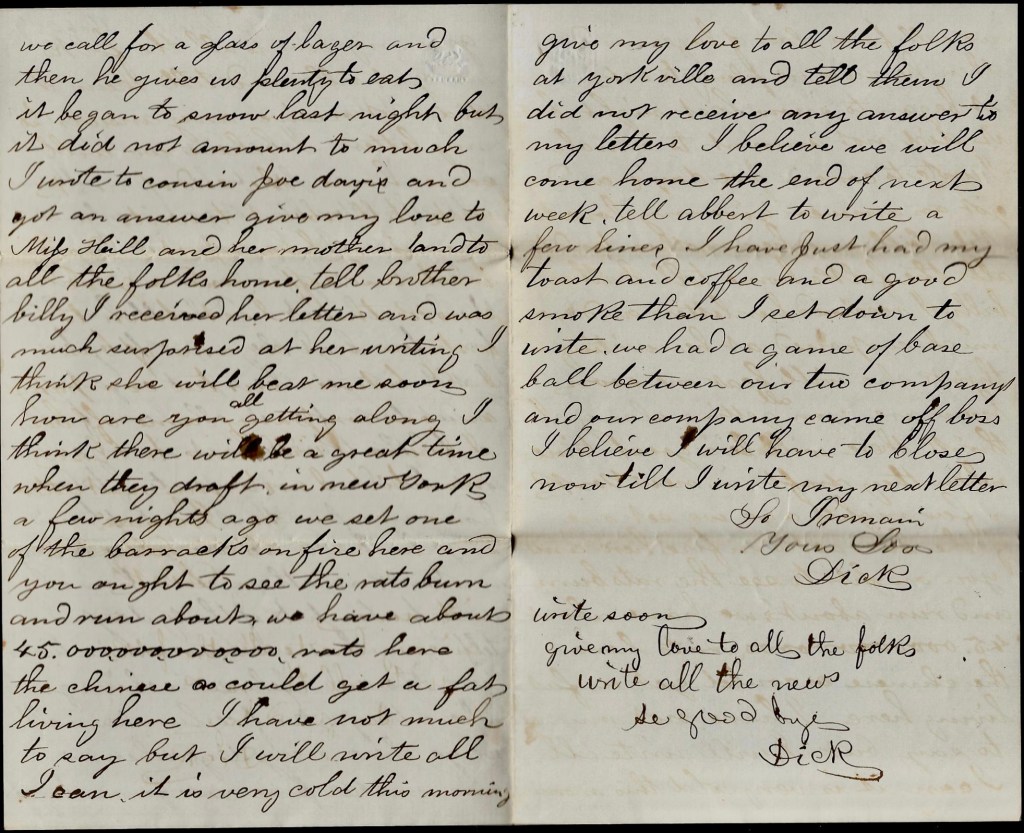 we call for a glass of lager and
then he gives us plenty to eat
it began to snow last night but
it did not amount to much
I wrote to cousin Joe davis and
got an answer give my love to
Miss Hill and her mother and to
all the folks home. tell brother
billy I received her letter and was
much surprised at her writing I
think she will beat me soon
how are you all getting along I
think there will be a great time
when they draft in new York
a few nights ago we set one
of the barracks on fire here and
you ought to see the rats burn
and run about, we have about
45.000000000000, rats here
the chinese could get a fat
living here I have not much
to say but I will write all
I can, it is very cold this morning
give my love to all the folks
at yorkville and tell them I
did not receive any answer to
my letters I believe we will
come home the end of next
week. tell abbert to write a
few lines I have Just had my
toast and coffee and a good
smoke than I set down to
write. we had a game of base
ball between our two companys
and our company came off boss
I believe I will have to close
now till I write my next letter
So I remain
Your Son
Dick
write soon
give my love to all the folks
write all the news
so good bye
Dick